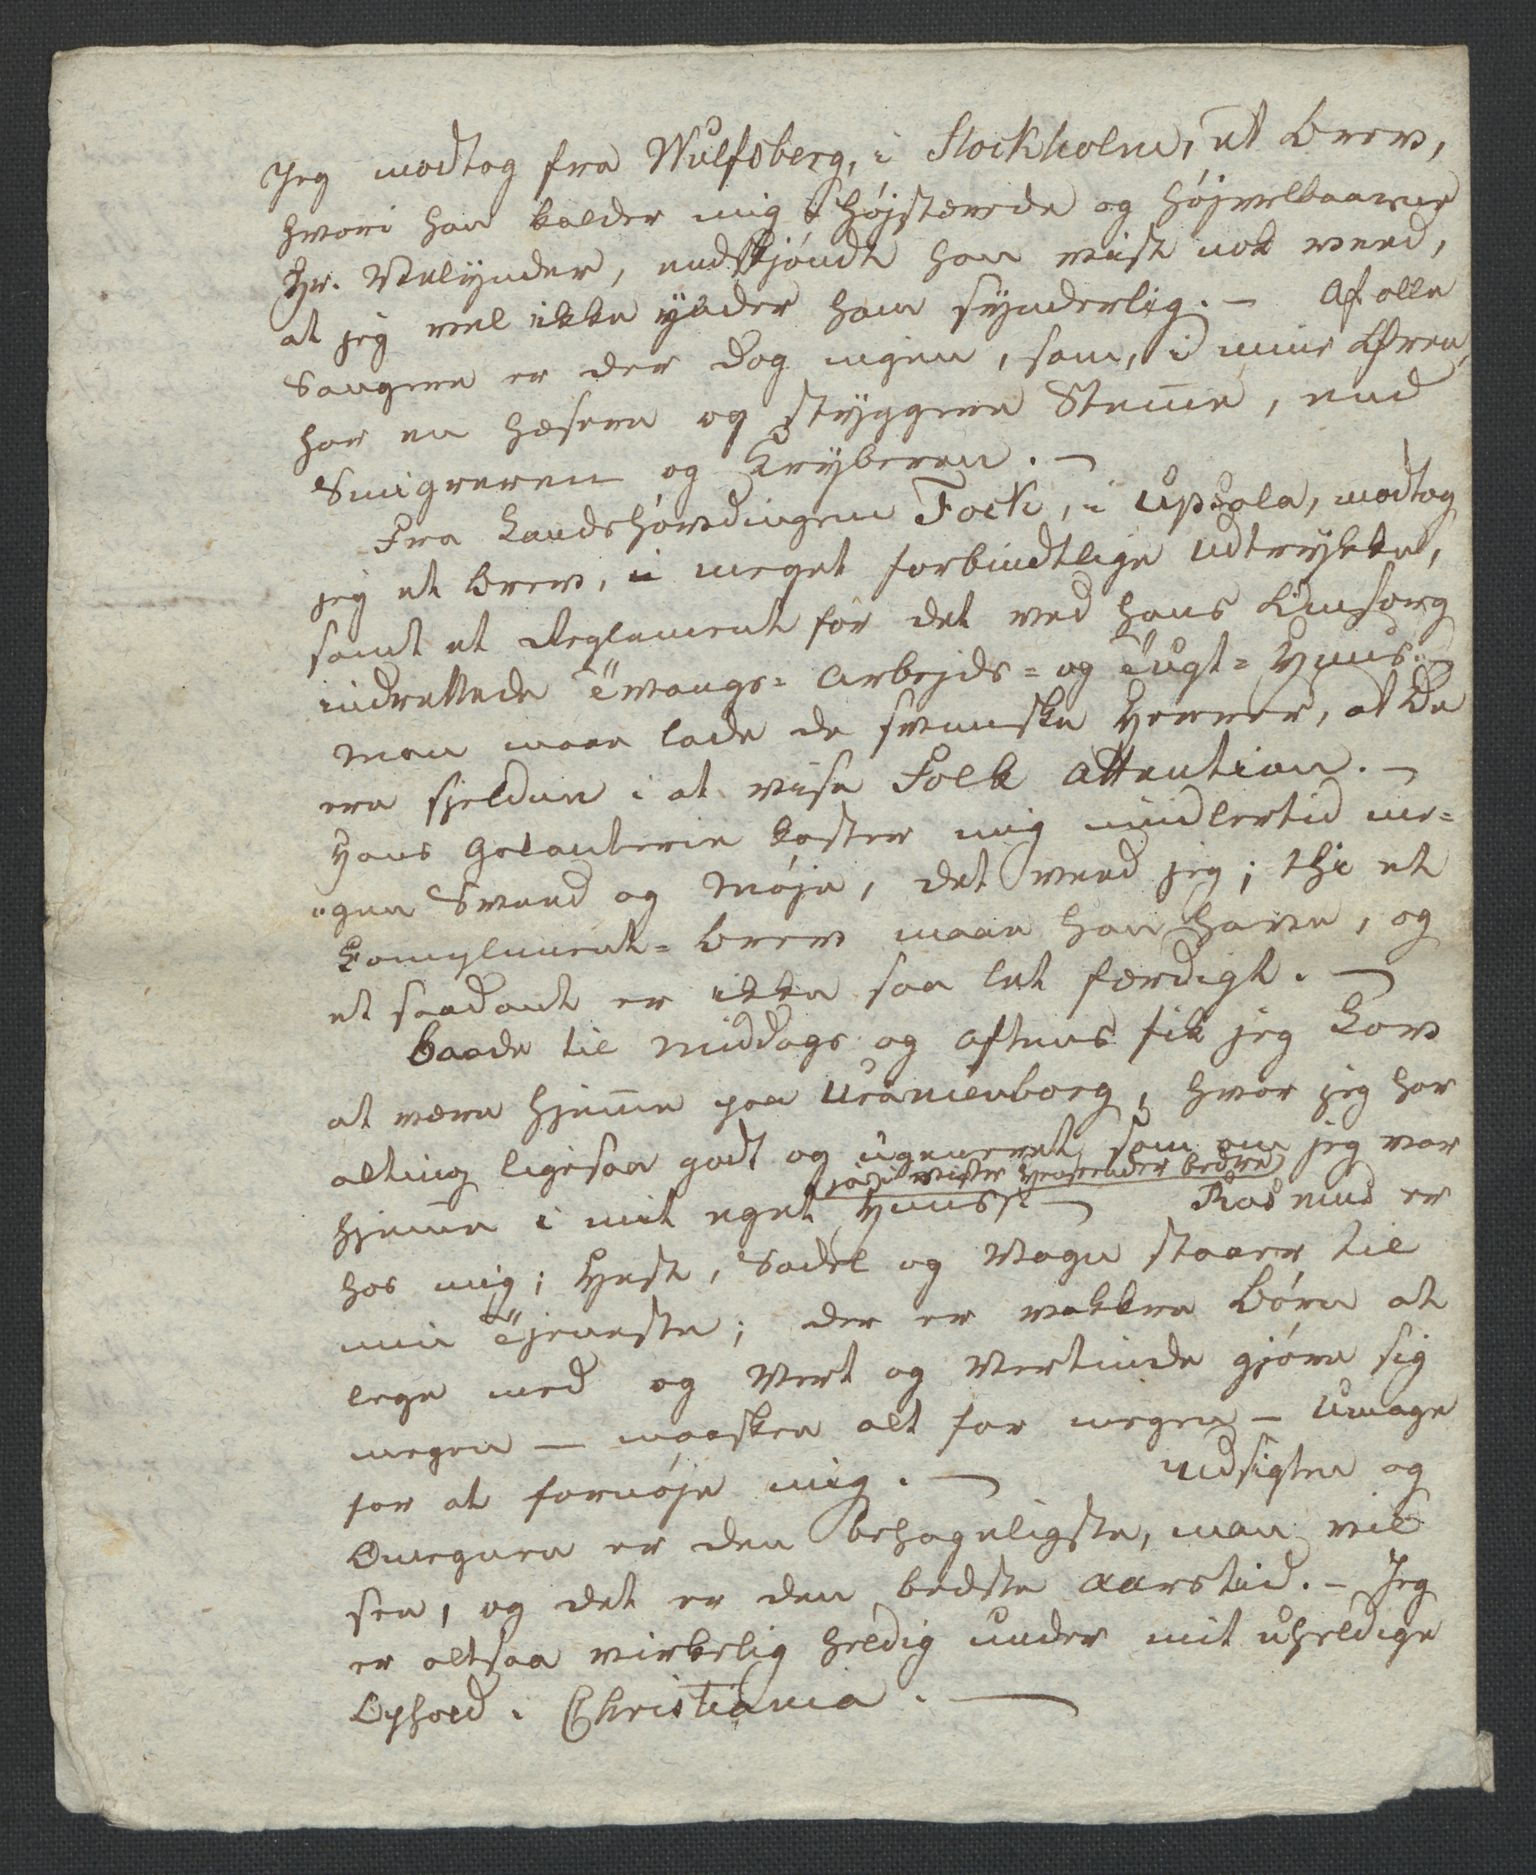 Jeg modtog fra Wulfsberg, i Stockholm, et Brev,
hvori han kalder mig højstærede og højvelbaarne
Hr. Velynder, endskjøndt han vist nok veed,
at jeg vel ikke ynder ham synderlig. – Af alle
Sangere er der dog ingen, som, i mine Øren,
har en hæsere og styggere Stemme, end
Smigreren og Kryberen. –
Fra Landshøvdingen Fock, i Upsala, modtog
jeg et Brev, i meget forbindtlige Udtrykke,
samt et Reglement for det ved hans Omsorg
indrettede Tvangs= Arbejds= og Tugt= Huus.
Man maa lade de svenske Herrer, at De
ere sjeldne i at vise Folk Attention. –
Hans Galanterie koster mig imidlertid me=
=gen Sveed og Møje, det veed jeg; thi et
Compliment= Brev maa han have, og
et saadant er ikke saa let færdigt. –
Baade til Middags og Aftens fik jeg Lov
at være hjemme paa Uranienborg, hvor jeg har
alting ligesaa godt og ugeneret, som om jeg var
ja i visse Henseender bedre
hjemme i mit eget Huus. – Rasmus er
hos mig; Hest, Sadel og Vogn staaer til
min Tjeneste; der er vakkre Børn at
lege med og Vert og Vertinde gjøre sig
megen – maaskee alt for megen – Umage
for at fornøje mig. – Udsigten og
Omegnen er den behageligste, man vil
see, og det er den bedste Aarstid. – Jeg
er altsaa virkelig heldig under mit uheldige
Ophold i Christiania. –